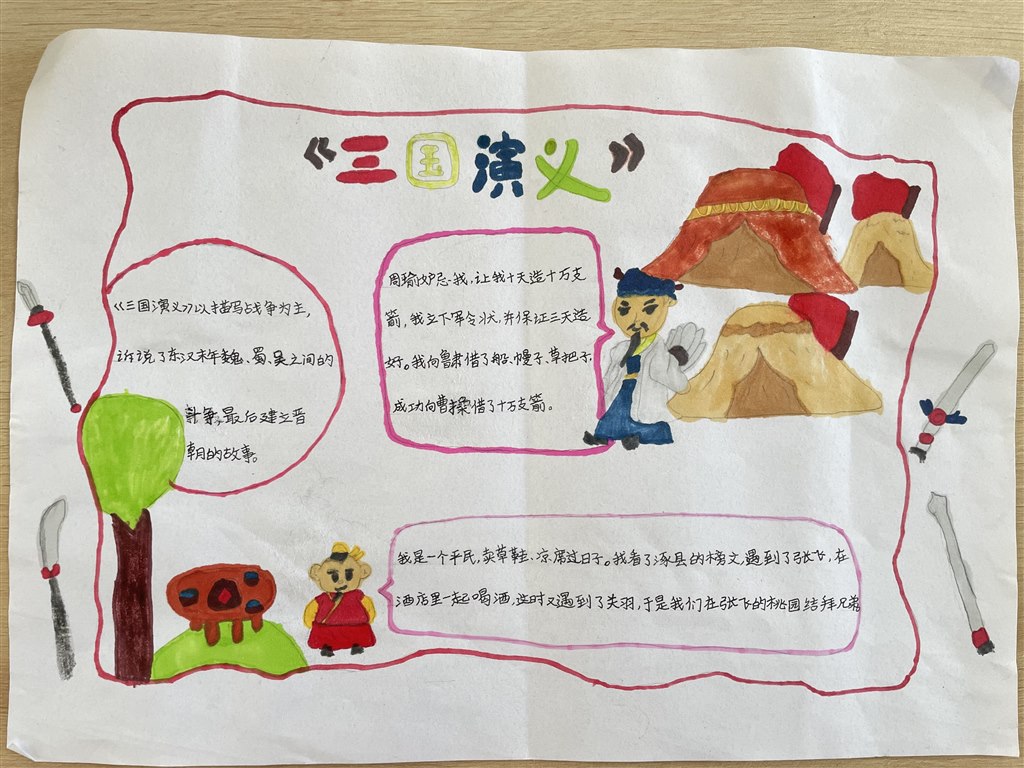 《三国演义》
《三国演义》以描写战争为主,
诉说了东汉末年魏、蜀、吴之间的
斗争,最后建立晋
朝的故事。
周瑜妒忌我,让我十天造十万支
箭,我立下军令状,并保证三天造
好。我向鲁肃借了船、幔子、草把子,
成功向曹操借了十万支箭。
我是一个平民,卖草鞋、凉席过日子。我看了涿县的榜文,遇到了张飞,在
酒店里一起喝酒,这时又遇到了关羽,于是我们在张飞的桃园结拜兄弟